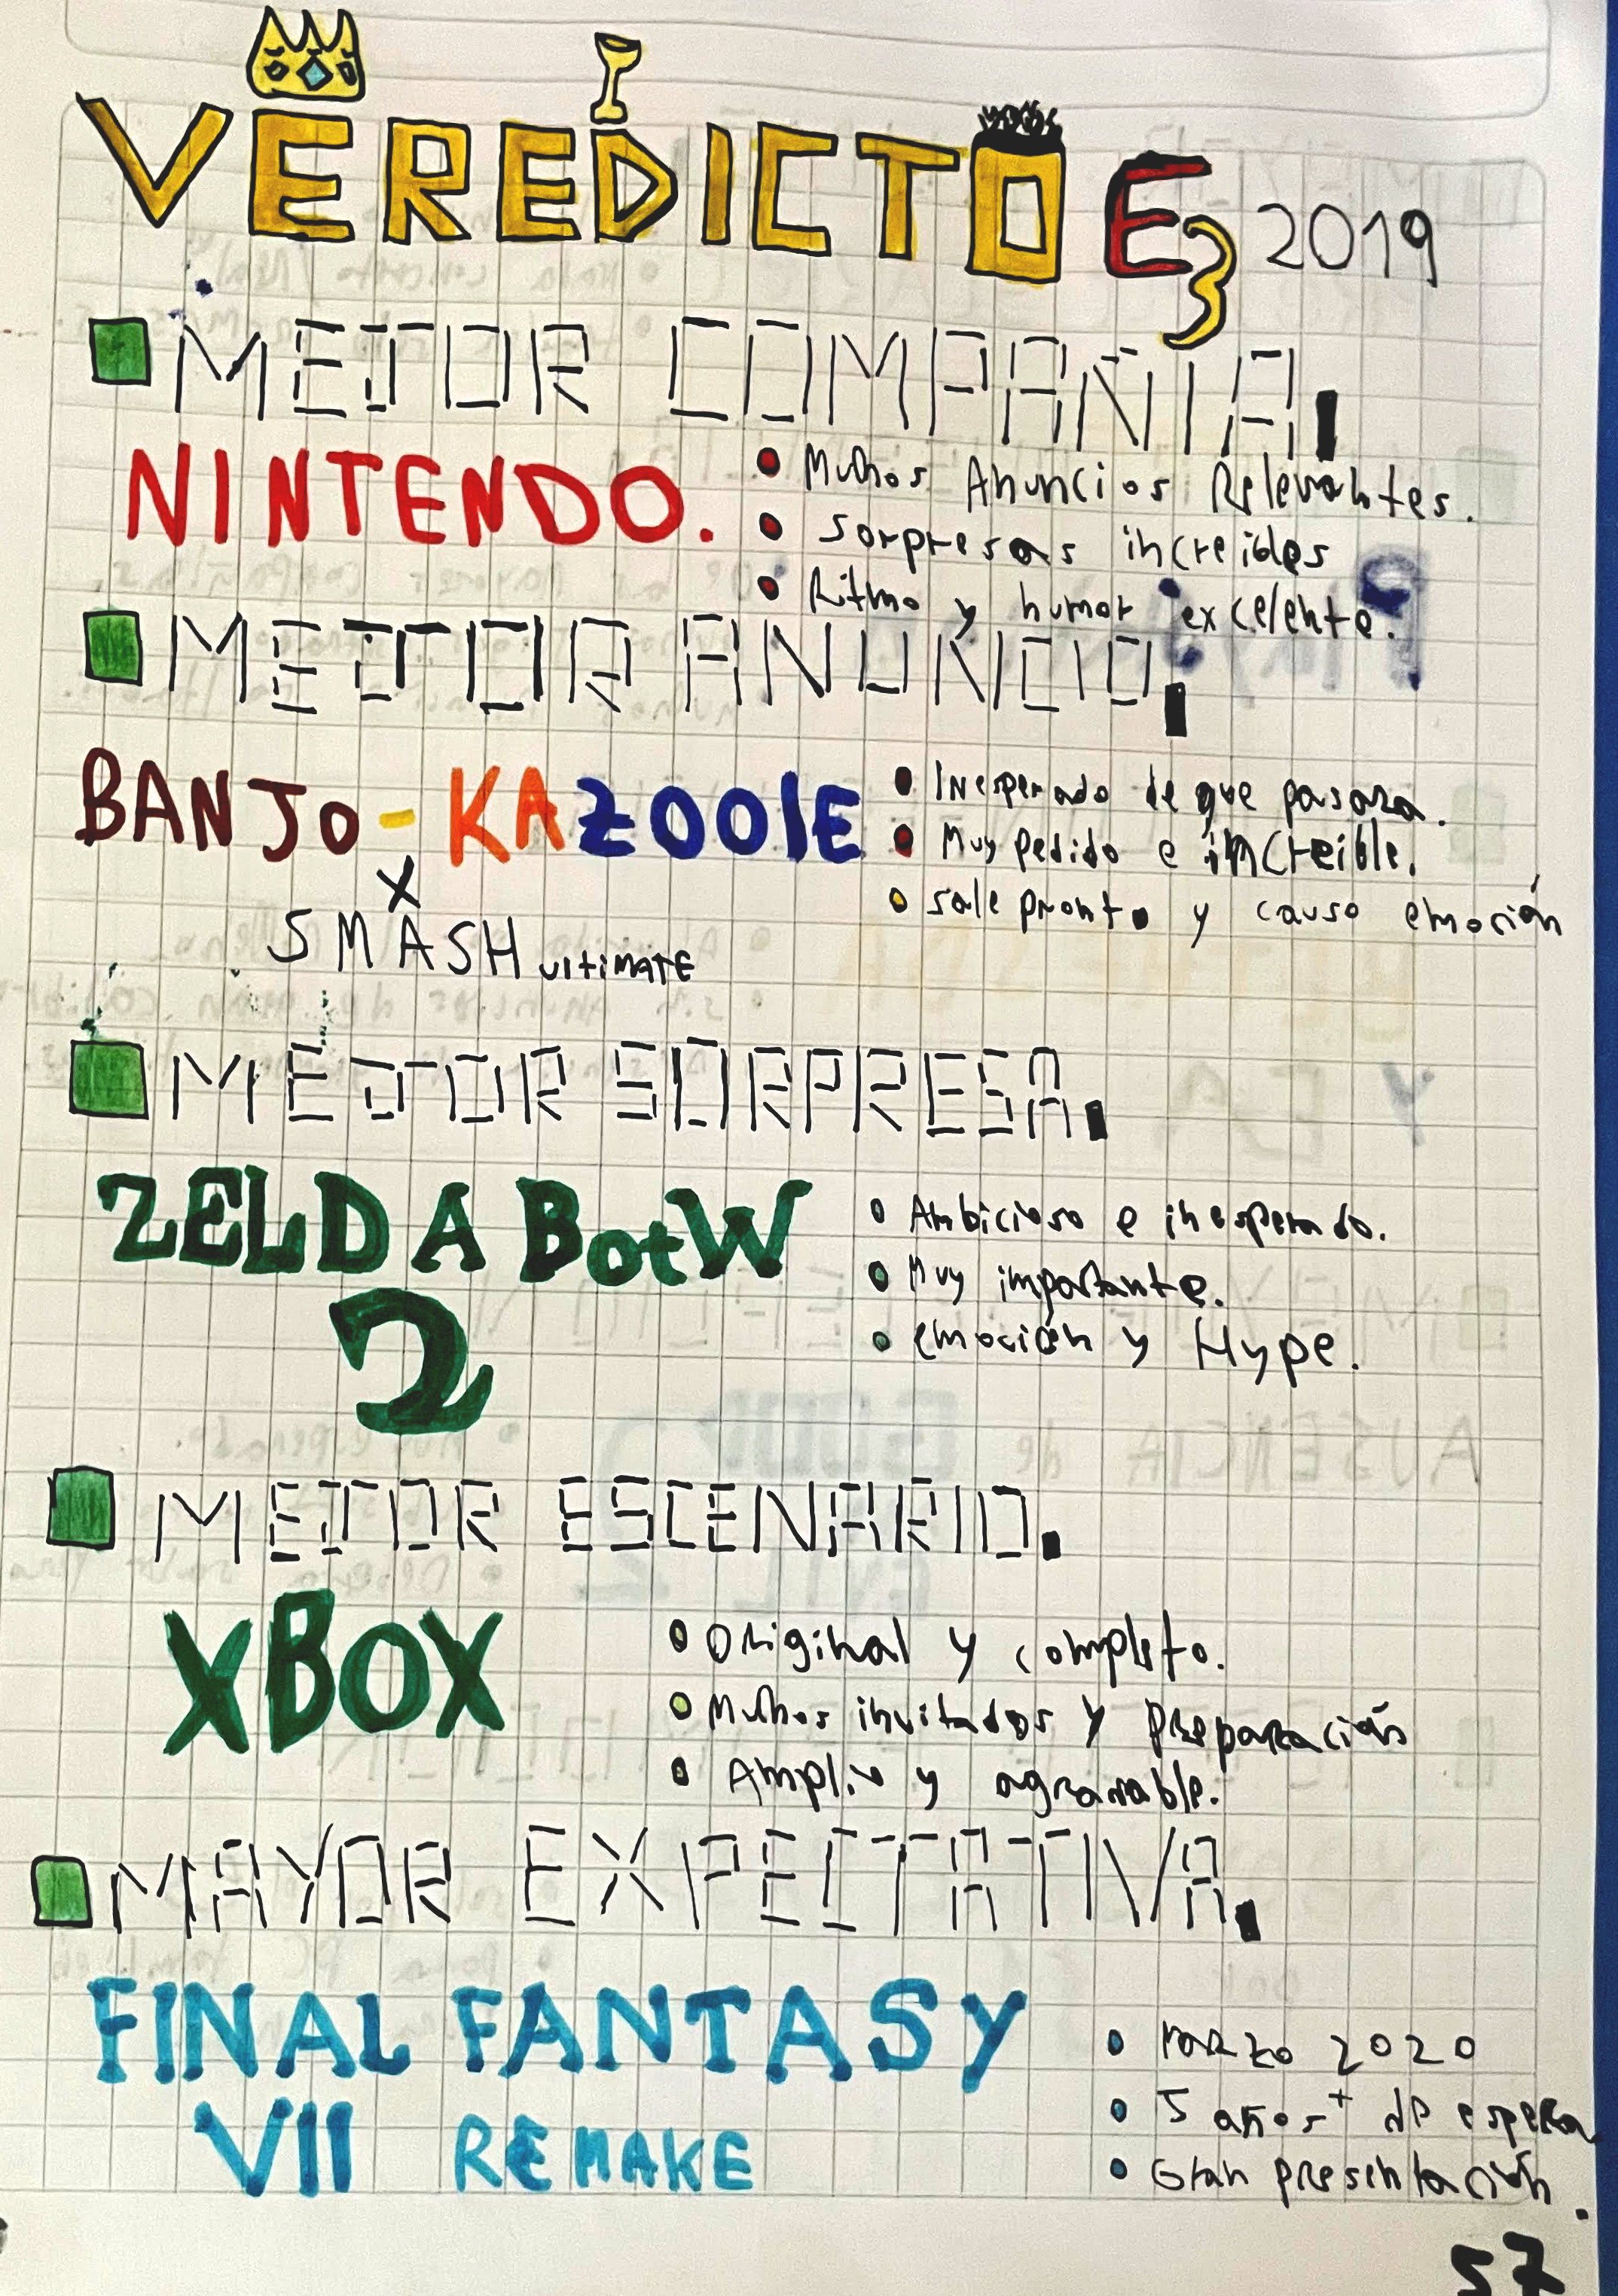 VEREDICTO E3 2019
MEJOR COMPAÑIA.
NINTENDO.
• Muchos Anuncios Relevantes.
• Sorpresas increibles
• Ritmo y humor excelente.
MEJOR ANUNCIO.
BANJO-KAZOOIE
X
SMASH ULTIMATE
• Inesperado de que pasara.
• Muy pedido e increible.
• Sale pronto y causo emoción
MEJOR SORPRESA.
ZELDA BotW
2
• Ambicioso e inesperado.
• Muy importante.
• emoción y Hype.
MEJOR ESCENARIO.
XBOX
• Original y completo.
• Muchos invitados y preparación
• Amplio y agradable.
MAYOR EXPECTATIVA.
FINAL FANTASY
VII REMAKE
• Marzo 2020
• 5 años+ de espera
• Gran presentación.
57